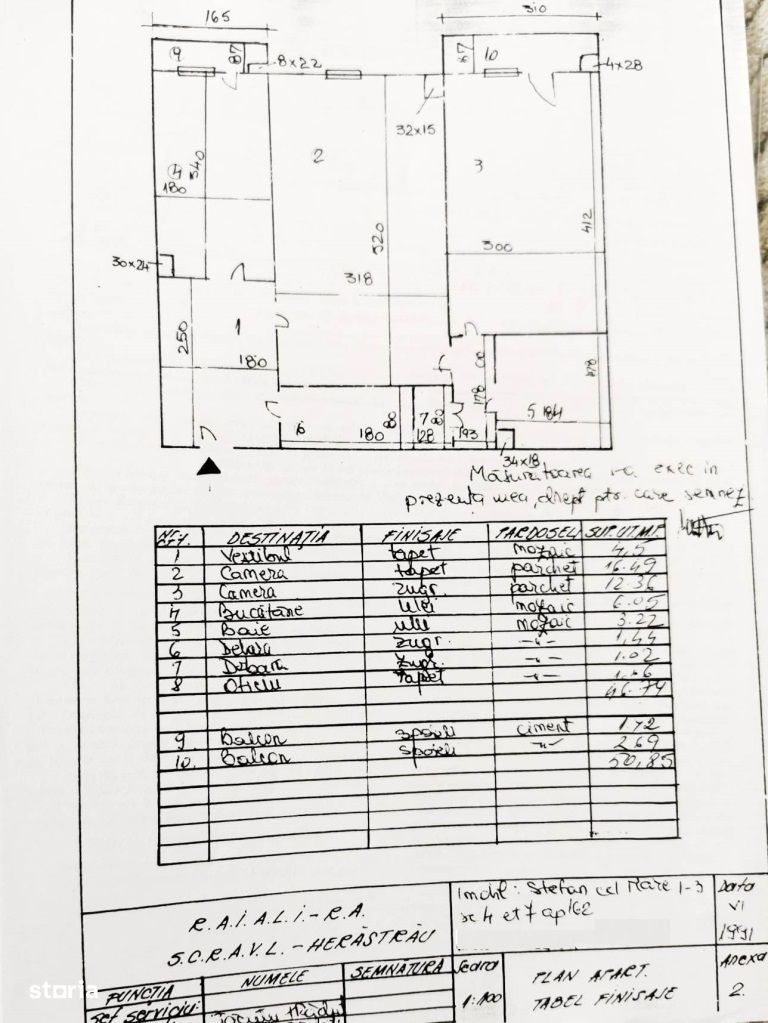 165
310
9
87
8x22
67
10
4x28
32x15
2
3
4
540
180
412
520
300
30x24
318
1
250
180
178
178
6
180
80
7
80
128
93
5 184
34x18
Măsurătoarea s-a exec în
prezența mea, drept ptr. care semnez
NR. CRT. DESTINAȚIA FINISAJE PARDOSELI SUP. UT. MP.
1 Vestibul tapet mozaic 4,5
2 Camera tapet parchet 16.49
3 Camera zugr. parchet 12.36
4 Bucătărie ulei mozaic 6.05
5 Baie ulei mozaic 3.22
6 Debara zugr. -"- 1.44
7 Debara zugr. -"- 1.02
8 Oficiu tapet -"- 1.66
46.74
9 Balcon spoieli ciment 1,42
10. Balcon spoieli -"- 2.69
50,85
R.A.I.A.L.I - R.A.
S.C.R.A.V.L. - HERĂSTRĂU
Imobil: Stefan cel Mare 1-3
sc 4 et 7 ap 162
Data
VI
1991
FUNCȚIA NUMELE SEMNĂTURA
Șef serviciu
Scara
1:100
PLAN APART.
TABEL FINISAJE
Anexa
2.
storia